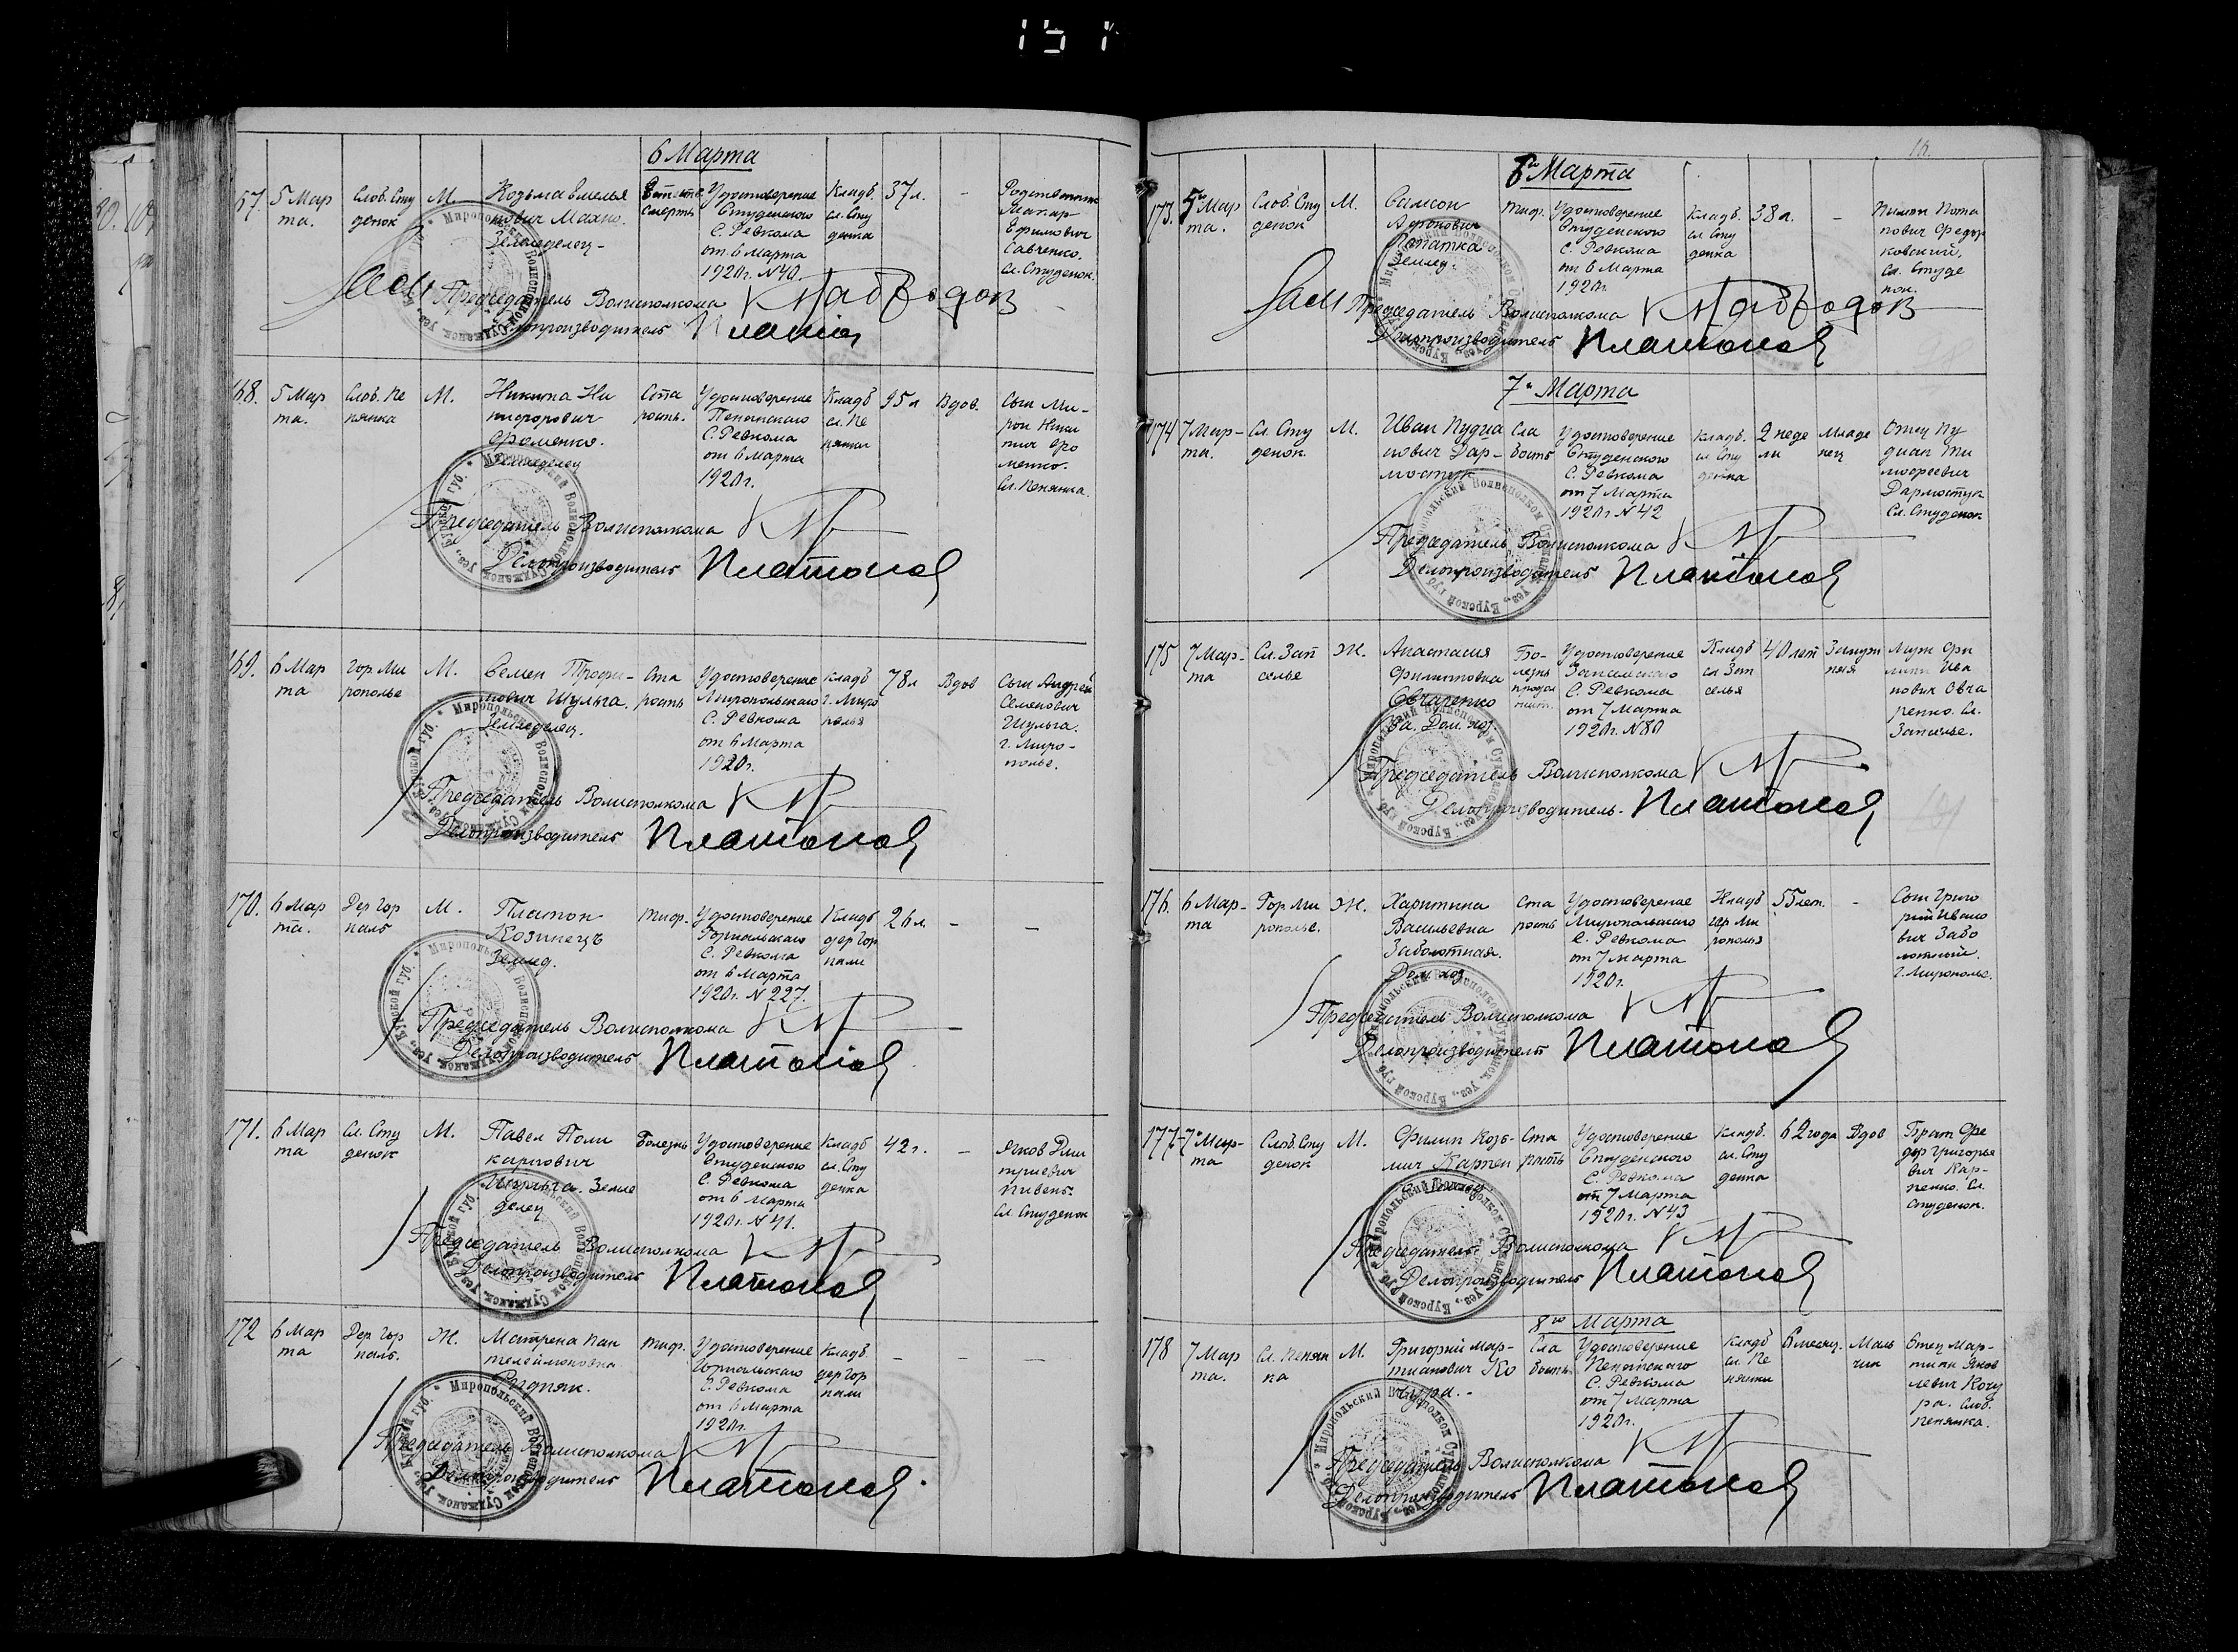 6 Марта
5 Мар
та.
Слоб. Сту
денок
М.
Козьма Емелья
нович Махно.
Земледелец
смерть
Удостоверение
Студенского
С. Ревкома
от 6 Марта
1920 г. N 40.
Кладб.
сл. Сту
денка
37 л.
-
Родственник
Макар
Ефимович
Савченко.
Сл. Студенок.
Председатель Волисполкома
Делопроизводитель Платонов
168.
5 Мар
та.
Слоб. Пе
нянка
М.
Никита Ни
кифорович
Фоменко.
Земледелец
Ста
рость.
Удостоверение
Пенянского
С. Ревкома
от 6 Марта
1920 г.
Кладб
сл. Пе
нянки
95 л
Вдов.
Сын Ми-
рон Ники
тич Фо
менко.
Сл. Пенянка.
Председатель Волисполкома
Делопроизводитель Платонов
169.
6 Мар
та
Гор. Ми
рополье
М.
Семен Трофи-
мович Шульга.
Земледелец.
Ста
рость
Удостоверение
Миропольского
С. Ревкома
от 6 Марта
1920 г.
Кладб
г. Миро
полья
78 л
Вдов
Сын Андрей
Семенович
Шульга.
г. Миро-
полье.
Председатель Волисполкома
Делопроизводитель Платонов
170.
6 Мар
та.
Дер Гор
наль
М.
Платон
Козинецъ
Землед.
тиф.
Удостоверение
Горнальского
С. Ревкома
от 6 Марта
1920 г. N 227.
Кладб
дер Гор
нали
26 л.
-
-
Председатель Волисполкома
Делопроизводитель Платонов
171.
6 Мар
та
Сл. Сту
денок
М.
Павел Поли
карпович
Шульга. Земле
делец
Болезнь
Удостоверение
Студенского
С. Ревкома
от 6 Марта
1920 г. N 41.
Кладб
сл. Сту
денка
42 г.
-
Яков Дми
триевич
Пивень.
Сл. Студенок
Председатель Волисполкома
Делопроизводитель Платонов
172
6 Мар
та
Дер Гор
наль.
Ж.
Матрена Пан
телеймоновна
тиф.
Удостоверение
Горнальского
С. Ревкома
от 6 Марта
1920 г.
Кладб.
дер Гор
нали
-
-
-
Председатель Волисполкома
Делопроизводитель Платонов
6го Марта
173.
5 Мар
та.
Слоб. Сту
денок
М.
Самсон
Лопатка
Землед.
тиф.
Удостоверение
Студенского
С. Ревкома
от 6 Марта
1920 г.
Кладб.
сл Сту
денка
38 л.
-
Пимен Пота
пович Федор
ковский,
Сл. Студе
нок.
Председатель Волисполкома
Делопроизводитель Платонов
7го Марта
174
7 Мар-
та.
Сл. Сту
денок
М.
Иван Пудиа
нович Дар-
мостук
Сла
бость
Удостоверение
Студенского
С. Ревкома
от 7 Марта
1920 г N 42
Кладб.
сл Сту
денка
2 неде
ли
Младе
нец
Отец Пу
диан Ти
мофеевич
Дармостук
Сл. Студенок
Председатель Волисполкома
Делопроизводитель Платонов
175
7 Мар-
та
Сл. Зап
селье
Ж.
Анастасия
Филипповна
Овчаренко
Дом. хоз.
Бо-
лезнь
Удостоверение
Запсельского
С. Ревкома
от 7 Марта
1920 г. N 80
Кладб
сл Зап
селья
40 лет
Замуж
няя
Муж Фи
липп Ива
нович Овча
ренко. Сл.
Запселье.
Председатель Волисполкома
Делопроизводитель. Платонов
176.
6 Мар-
та
Гор. Ми
рополье.
Ж.
Харитина
Васильевна
Заболотная.
Дом. хоз.
Ста
рость
Удостоверение
Миропольского
С. Ревкома
от 7 марта
1920 г.
Кладб
гор. Ми
рополья
55 лет.
-
Сын Григо
рий Ивано
вич Забо
лотный.
г. Мирополье.
Председатель Волисполкома
Делопроизводитель Платонов
177
7 Мар-
та
Слоб. Сту
денок
М.
Филип Козь-
мич Карпен
Ста
рость
Удостоверение
Студенского
С. Ревкома
от 7 Марта
1920 г. N 43
Кладб.
сл. Сту
денка
62 года
Вдов
Брат Фе
дор Григорье
вич Кар-
пенко. Сл.
Студенок.
Председатель Волисполкома
Делопроизводитель Платонов
8го Марта
178
7 Мар
та.
Сл. Пенян
ка
М.
Григорий Мар-
тианович Ко
чура.-
Сла
бость
Удостоверение
Пенянского
С. Ревкома
от 7 Марта
1920 г.
Кладб
сл. Пе
нянки
6 месяц.
Маль
чик
Отец Мар-
тиан Яков
левич Кочу
ра. Слоб.
Пенянка.
Председатель Волисполкома
Делопроизводитель Платонов